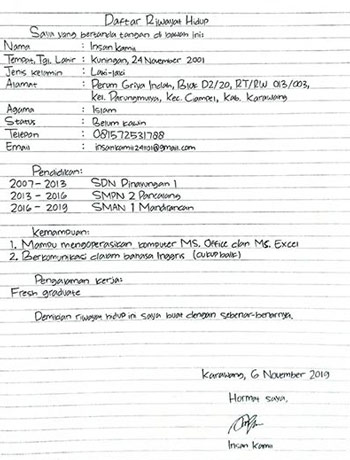 Daftar Riwayat Hidup
Saya yang bertanda tangan di bawah ini:
Nama : Insan Kamil
Tempat, Tgl. Lahir : Kuningan, 24 November 2001
Jenis kelamin : Laki-laki
Alamat : Perum Griya Indah, Blok D2/20, RT/RW 013/003,
Kel. Parungmulya, Kec. Ciampel, Kab. Karawang
Agama : Islam
Status : Belum kawin
Telepon : 081572531788
Email : insankamil241101@gmail.com
Pendidikan:
2007 - 2013 SDN Pinarungan 1
2013 - 2016 SMPN 2 Pancalang
2016 - 2019 SMAN 1 Mandirancan
Kemampuan:
1. Mampu mengoperasikan komputer MS. Office dan MS. Excel
2. Berkomunikasi dalam bahasa Inggris (cukup baik)
Pengalaman kerja:
Fresh graduate
Demikian riwayat hidup ini saya buat dengan sebenar-benarnya.
Karawang, 6 November 2019
Hormat saya,
Insan Kamil